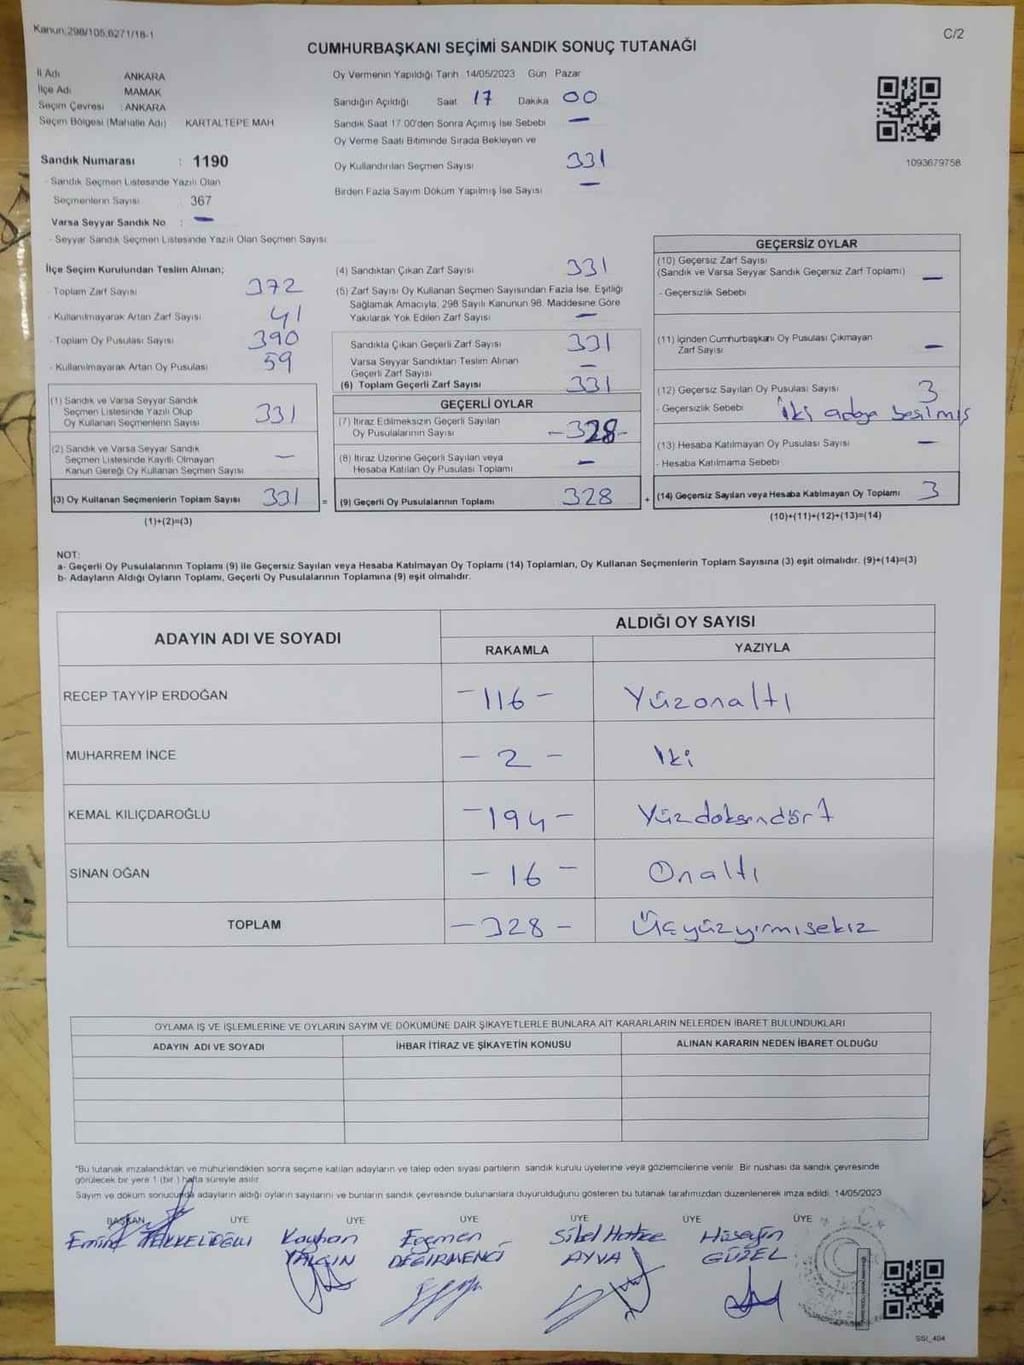 Kanun:298/105,6271/18-1
C/2
CUMHURBAŞKANI SEÇİMİ SANDIK SONUÇ TUTANAĞI
İl Adı ANKARA
İlçe Adı MAMAK
Seçim Çevresi : ANKARA
Seçim Bölgesi (Mahalle Adı) KARTALTEPE MAH
Sandık Numarası : 1190
- Sandık Seçmen Listesinde Yazılı Olan
Seçmenlerin Sayısı 367
Varsa Seyyar Sandık No : —
- Seyyar Sandık Seçmen Listesinde Yazılı Olan Seçmen Sayısı
Oy Vermenin Yapıldığı Tarih 14/05/2023 Gün Pazar
Sandığın Açıldığı Saat 17 Dakika 00
Sandık Saat 17.00'den Sonra Açımış İse Sebebi —
Oy Verme Saati Bitiminde Sırada Bekleyen ve
Oy Kullandırılan Seçmen Sayısı 331
Birden Fazla Sayım Döküm Yapılmış İse Sayısı —
1093679758
İlçe Seçim Kurulundan Teslim Alınan;
- Toplam Zarf Sayısı 372
- Kullanılmayarak Artan Zarf Sayısı 41
- Toplam Oy Pusulası Sayısı 390
- Kullanılmayarak Artan Oy Pusulası 59
(1) Sandık ve Varsa Seyyar Sandık
Seçmen Listesinde Yazılı Olup
Oy Kullanan Seçmenlerin Sayısı 331
(2) Sandık ve Varsa Seyyar Sandık
Seçmen Listesinde Kayıtlı Olmayan
Kanun Gereği Oy Kullanan Seçmen Sayısı —
(3) Oy Kullanan Seçmenlerin Toplam Sayısı 331 =
(1)+(2)=(3)
(4) Sandıktan Çıkan Zarf Sayısı 331
(5) Zarf Sayısı Oy Kullanan Seçmen Sayısından Fazla İse, Eşitliği
Sağlamak Amacıyla, 298 Sayılı Kanunun 98. Maddesine Göre
Yakılarak Yok Edilen Zarf Sayısı —
Sandıkta Çıkan Geçerli Zarf Sayısı 331
Varsa Seyyar Sandıktan Teslim Alınan
Geçerli Zarf Sayısı —
(6) Toplam Geçerli Zarf Sayısı 331
GEÇERLİ OYLAR
(7) İtiraz Edilmeksizin Geçerli Sayılan
Oy Pusulalarının Sayısı -328-
(8) İtiraz Üzerine Geçerli Sayılan veya
Hesaba Katılan Oy Pusulası Toplamı —
(9) Geçerli Oy Pusulalarının Toplamı 328 +
GEÇERSİZ OYLAR
(10) Geçersiz Zarf Sayısı
(Sandık ve Varsa Seyyar Sandık Geçersiz Zarf Toplamı) —
- Geçersizlik Sebebi
(11) İçinden Cumhurbaşkanı Oy Pusulası Çıkmayan
Zarf Sayısı —
(12) Geçersiz Sayılan Oy Pusulası Sayısı 3
- Geçersizlik Sebebi iki adaya basılmış
(13) Hesaba Katılmayan Oy Pusulası Sayısı —
- Hesaba Katılmama Sebebi
(14) Geçersiz Sayılan veya Hesaba Katılmayan Oy Toplamı 3
(10)+(11)+(12)+(13)=(14)
NOT:
a- Geçerli Oy Pusulalarının Toplamı (9) ile Geçersiz Sayılan veya Hesaba Katılmayan Oy Toplamı (14) Toplamları, Oy Kullanan Seçmenlerin Toplam Sayısına (3) eşit olmalıdır. (9)+(14)=(3)
b- Adayların Aldığı Oyların Toplamı, Geçerli Oy Pusulalarının Toplamına (9) eşit olmalıdır.
ADAYIN ADI VE SOYADI ALDIĞI OY SAYISI
RAKAMLA YAZIYLA
RECEP TAYYİP ERDOĞAN -116- Yüzonaltı
MUHARREM İNCE -2- İki
KEMAL KILIÇDAROĞLU -194- Yüzdoksandört
SİNAN OĞAN -16- Onaltı
TOPLAM -328- Üçyüzyirmisekiz
OYLAMA İŞ VE İŞLEMLERİNE VE OYLARIN SAYIM VE DÖKÜMÜNE DAİR ŞİKAYETLERLE BUNLARA AİT KARARLARIN NELERDEN İBARET BULUNDUKLARI
ADAYIN ADI VE SOYADI İHBAR İTİRAZ VE ŞİKAYETİN KONUSU ALINAN KARARIN NEDEN İBARET OLDUĞU
"Bu tutanak imzalandıktan ve mühürlendikten sonra seçime katılan adayların ve talep eden siyasi partilerin sandık kurulu üyelerine veya gözlemcilerine verilir. Bir nüshası da sandık çevresinde
görülecek bir yere 1 (bir ) hafta süreyle asılır
Sayım ve döküm sonucunda adayların aldığı oyların sayılarını ve bunların sandık çevresinde bulunanlara duyurulduğunu gösteren bu tutanak tarafımızdan düzenlenerek imza edildi. 14/05/2023
BAŞKAN ÜYE ÜYE ÜYE ÜYE ÜYE ÜYE
Emine TEKKELİOĞLU Kayhan YALÇIN Egemen DEĞİRMENCİ Sibel Hatice AYVA Hüseyin GÜZEL
SSI_404